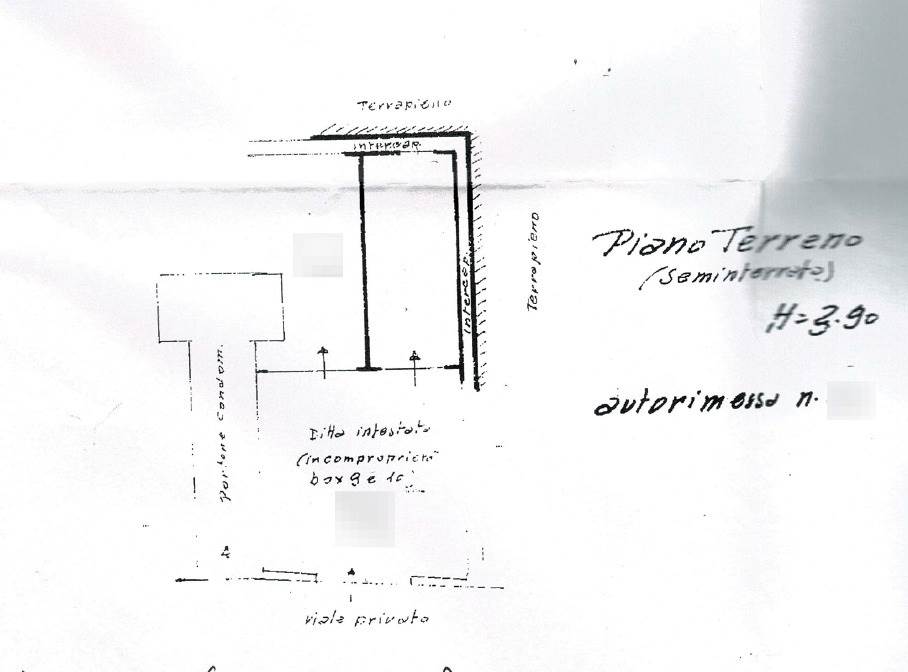 Terrapieno
intercap.
Terrapieno
intercap.
Piano Terreno
(seminterrato)
H=3.90
autorimessa n.
Portone Condom.
Ditta intestata
(incomproprietà
box 9 e 10
viale privato